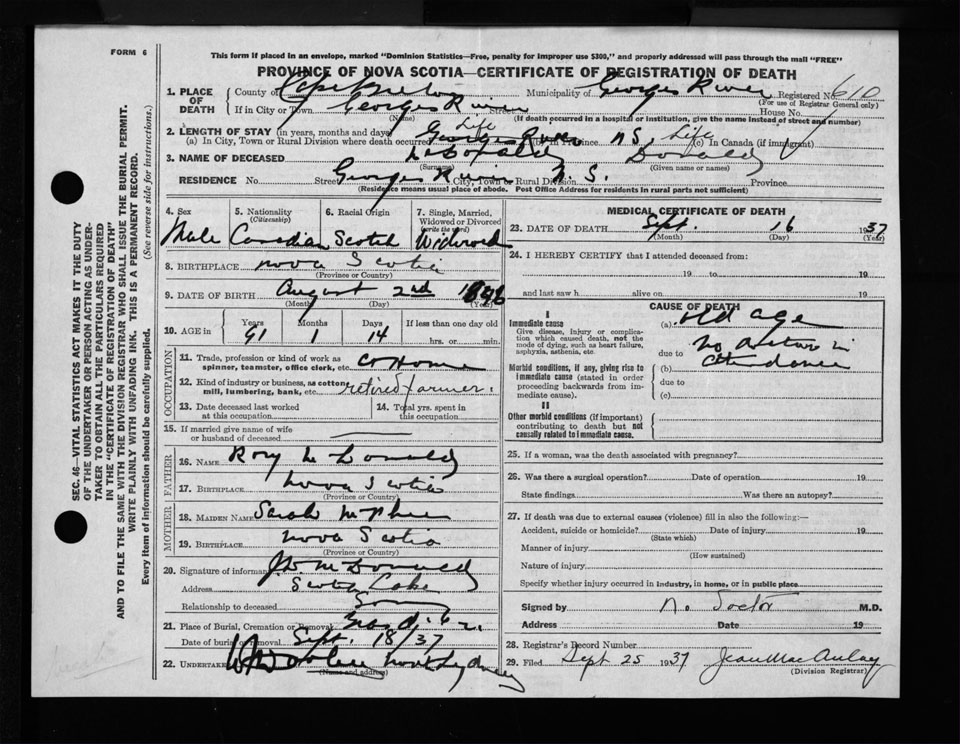 FORM 6
This form if placed in an envelope, marked "Dominion Statistics—Free, penalty for improper use $300," and properly addressed will pass through the mail "FREE"
PROVINCE OF NOVA SCOTIA—CERTIFICATE OF REGISTRATION OF DEATH
1. PLACE OF DEATH County of Cape Breton Municipality of Georges River Registered No. 610
(For use of Registrar General only)
If in City or Town Georges River Street House No.
(Name) (If death occurred in a hospital or institution, give the name instead of street and number)
2. LENGTH OF STAY (in years, months and days)
(a) In City, Town or Rural Division where death occurred Life Georges River (b) in Province N S. Life (c) In Canada (if immigrant)
3. NAME OF DECEASED McDonald Donald
(Surname) (Given name or names)
RESIDENCE No. Street Georges River City, Town or Rural Division N. S. Province
(Residence means usual place of abode. Post Office Address for residents in rural parts not sufficient)
SEC. 46—VITAL STATISTICS ACT MAKES IT THE DUTY
OF THE UNDERTAKER OR PERSON ACTING AS UNDER-
TAKER TO OBTAIN ALL THE PARTICULARS REQUIRED
IN THE "CERTIFICATE OF REGISTRATION OF DEATH"
AND TO FILE THE SAME WITH THE DIVISION REGISTRAR WHO SHALL ISSUE THE BURIAL PERMIT.
WRITE PLAINLY WITH UNFADING INK. THIS IS A PERMANENT RECORD.
Every item of information should be carefully supplied. (See reverse side for instructions.)
4. Sex 5. Nationality (Citizenship) 6. Racial Origin 7. Single, Married, Widowed or Divorced (write the word)
Male Canadian Scotch Widowed
8. BIRTHPLACE Nova Scotia
(Province or Country)
9. DATE OF BIRTH August 2nd
(Month) (Day) (Year)
10. AGE in Years Months Days If less than one day old
91 1 14 hrs. or min.
OCCUPATION
11. Trade, profession or kind of work as spinner, teamster, office clerk, etc. at Home
12. Kind of industry or business, as cotton mill, lumbering, bank, etc. retired farmer.
13. Date deceased last worked at this occupation 14. Total yrs. spent in this occupation
15. If married give name of wife or husband of deceased
FATHER
16. NAME Rory McDonald
17. BIRTHPLACE Nova Scotia
(Province or Country)
MOTHER
18. MAIDEN NAME Sarah McPhee
19. BIRTHPLACE Nova Scotia
(Province or Country)
20. Signature of informant McDonald
Address Scotch Lake
Relationship to deceased Son
21. Place of Burial, Cremation or Removal
Date of burial or removal Sept. 18/37
22. Undertaker North Sydney
(Name and address)
MEDICAL CERTIFICATE OF DEATH
23. DATE OF DEATH Sept. 16 1937
(Month) (Day) (Year)
24. I HEREBY CERTIFY that I attended deceased from:
19 to 19
and last saw h alive on 19
CAUSE OF DEATH
I
Immediate cause
Give disease, injury or complication which caused death, not the mode of dying, such as heart failure, asphyxia, asthenia, etc.
(a) old age
due to no doctor in
(b) attendance
Morbid conditions, if any, giving rise to immediate cause (stated in order proceeding backwards from immediate cause).
due to
(c)
II
Other morbid conditions (if important) contributing to death but not causally related to immediate cause.
25. If a woman, was the death associated with pregnancy?
26. Was there a surgical operation? Date of operation 19
State findings Was there an autopsy?
27. If death was due to external causes (violence) fill in also the following:—
Accident, suicide or homicide? Date of injury 19
(State which)
Manner of injury
(How sustained)
Nature of injury
Specify whether injury occurred in industry, in home, or in public place
Signed by No Doctor M.D.
Address Date 19
28. Registrar's Record Number
29. Filed Sept 25 1937 Jean MacAulay
(Division Registrar)